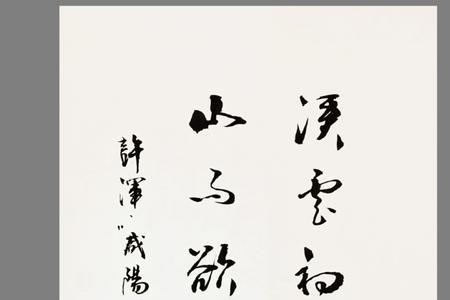 溪雲初
山雨欲
許渾咸陽